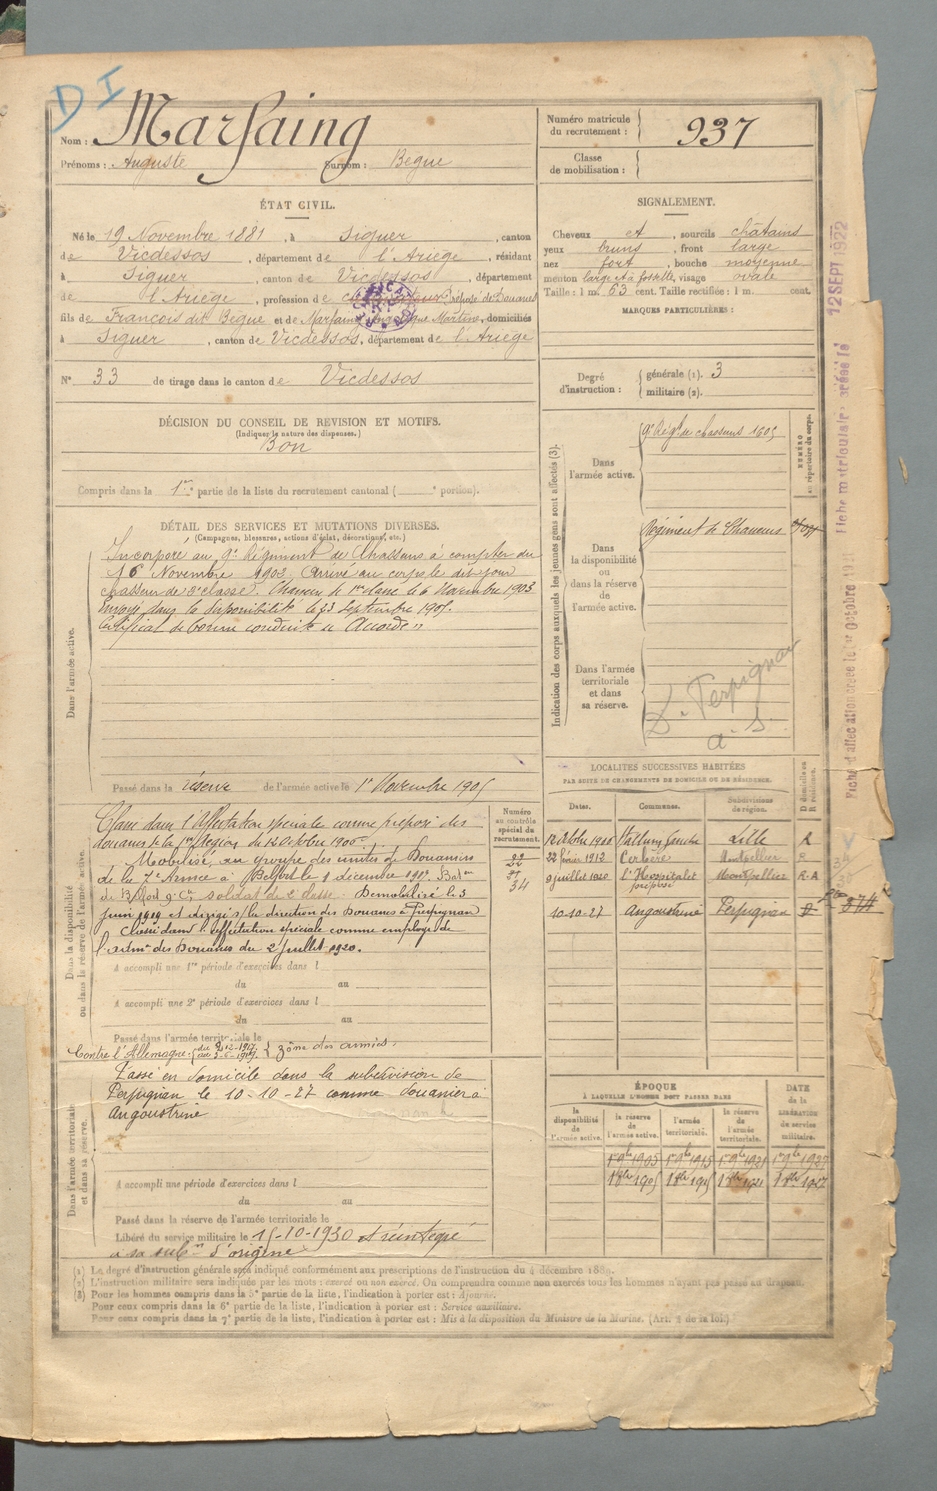 D I
Nom : Marfaing
Prénoms : Auguste Surnom : Begue
Numéro matricule du recrutement : 937
Classe de mobilisation :
ÉTAT CIVIL.
Né le 19 Novembre 1881, à Siguer, canton
de Vicdessos, département de l'Ariège, résidant
à Siguer, canton de Vicdessos, département
de l'Ariège, profession de Préposé des Douanes
fils de François dit Begue et de Marfaing Martine, domiciliés
à Siguer, canton de Vicdessos, département de l'Ariège
N° 33 de tirage dans le canton de Vicdessos
SIGNALEMENT.
Cheveux et, sourcils châtains
yeux bruns, front large
nez fort, bouche moyenne
menton large et à fossette, visage ovale
Taille : 1 m. 63 cent. Taille rectifiée : 1 m. cent.
MARQUES PARTICULIÈRES :
Degré d'instruction : générale (1). 3
militaire (2).
DÉCISION DU CONSEIL DE REVISION ET MOTIFS.
(Indiquer la nature des dispenses.)
Bon
Compris dans la 1re partie de la liste du recrutement cantonal ( e portion).
DÉTAIL DES SERVICES ET MUTATIONS DIVERSES.
(Campagnes, blessures, actions d'éclat, décorations, etc.)
Dans l'armée active.
Incorporé au 9e Régiment de Chasseurs à compter du
16 Novembre 1902 Arrivé au corps le dit jour
chasseur de 2e classe. Chasseur de 1re classe le 6 Novembre 1903
Envoyé dans la disponibilité le 23 Septembre 1905.
Certificat de bonne conduite "Accordé"
Passé dans la réserve de l'armée active le 1er Novembre 1905
Indication des corps auxquels les jeunes gens sont affectés (3).
NUMÉRO au répertoire du corps.
Dans l'armée active.
9e Régt de chasseurs 1605
Dans la disponibilité ou dans la réserve de l'armée active.
Régiment de Chasseurs
Dans l'armée territoriale et dans sa réserve.
Dn Perpignan
a. s.
Dans la disponibilité ou dans la réserve de l'armée active.
Numéro au contrôle spécial du recrutement.
34
Classé dans l'Affectation spéciale comme préposé des
douanes de la 1re Région du 12 Octobre 1900.
Mobilisé, au groupe des unités de Douaniers
de la 7e Armée à Belfort le 9 décembre 1917. Baton
de Belfort 9e Cie soldat de 2e classe. Démobilisé le 3
juin 1919 et dirigé s/ la direction des Douanes à Perpignan
Classé dans l'affectation spéciale comme employé de
l'admon des Douanes du 2 Juillet 1920.
A accompli une 1re période d'exercices dans l
du au
A accompli une 2e période d'exercices dans l
du au
Passé dans l'armée territoriale le
Contre l'Allemagne : du 9-12-1917 au 3-6-1919 zône des armées.
Dans l'armée territoriale et dans sa réserve.
Passé en domicile dans la subdivision de
Perpignan le 10-10-27 comme douanier à
Angoustrine
A accompli une période d'exercices dans l
du au
Passé dans la réserve de l'armée territoriale le
Libéré du service militaire le 15-10-1930 et réintégré
à sa subon d'origine
LOCALITÉS SUCCESSIVES HABITÉES
PAR SUITE DE CHANGEMENTS DE DOMICILE OU DE RÉSIDENCE.
Dates. Communes. Subdivisions de région. D domicile ou R résidence.
12 Octobre Lille R
22 février 1912 Cerbère Montpellier R
9 juillet 1920 l'Hospitalet préposé Montpellier R-A
10-10-27 Angoustrine Perpignan D
ÉPOQUE
À LAQUELLE L'HOMME DOIT PASSER DANS
DATE de la LIBÉRATION du service militaire.
la disponibilité de l'armée active. la réserve de l'armée active. l'armée territoriale. la réserve de l'armée territoriale.
1er 9bre 1905 1er 9bre 1915 1er 9bre 1921 1er 9bre 1927
(1) Le degré d'instruction générale sera indiqué conformément aux prescriptions de l'instruction du 4 décembre 1889.
(2) L'instruction militaire sera indiquée par les mots : exercé ou non exercé. On comprendra comme non exercés tous les hommes n'ayant pas passé au drapeau.
(3) Pour les hommes compris dans la 5e partie de la liste, l'indication à porter est : Ajourné.
Pour ceux compris dans la 6e partie de la liste, l'indication à porter est : Service auxiliaire.
Pour ceux compris dans la 7e partie de la liste, l'indication à porter est : Mis à la disposition du Ministre de la Marine. (Art. 4 de la loi.)
Fiche matriculaire créée le 12 SEPT 1922